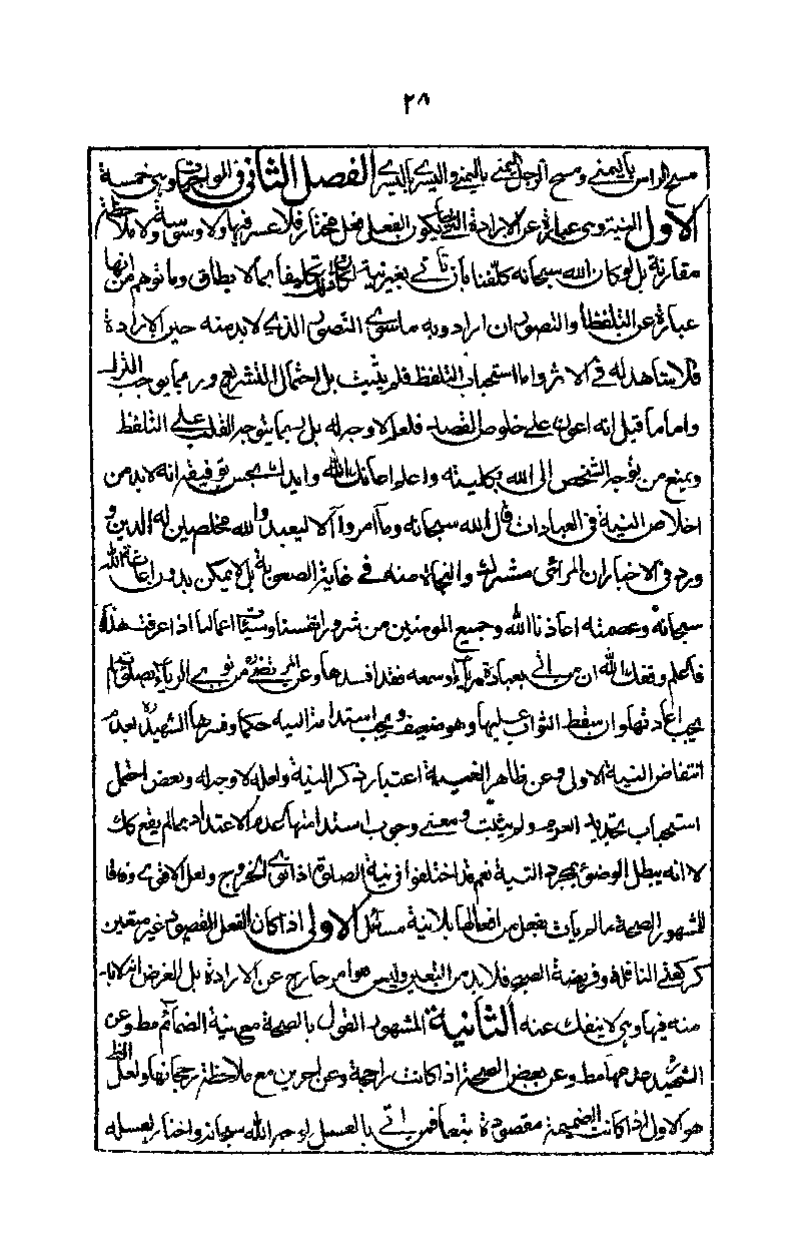 ٢٨
مسح الراس باليمنى ومسح الرجل اليمنى باليمنى واليسرى باليسرى الفصل الثاني في الواجبات وهي خمسة
الاول النية وهي عبارة عن الارادة التي بها يكون الفعل فعل مختار فلا عسر فيها ولا وسوسة ولا ملاحظة
مقارنة بل لو كان الله سبحانه كلفنا بان ناتي بغير نية لكان تكليفا بما لا يطاق وما توهم من انها
عبارة عن التلفظ والتصور ان ارادوا به ما سوى التصور الذي لا بد منه حين الارادة
فلا شاهد له في الاثر واما استحباب التلفظ فلم يثبت بل احتمال التشريع وربما يوجب الترك
واما ما قيل انه اعون على خلوص القصد فلعله لا وجه له بل ربما يتوجه القلب على التلفظ
ويمنع من توجه الشخص الى الله بكليته واعلم اعانك الله وايدك بحسن توفيقه انه لا بد من
اخلاص النية في العبادات قال الله سبحانه وما امروا الا ليعبدوا الله مخلصين له الدين و
ورد في الاخبار ان المرائي مشرك والنجاة منه في غاية الصعوبة بل لا يمكن بدون اعانة الله
سبحانه وعصمته اعاذنا الله وجميع المومنين من شرور انفسنا وسيئات اعمالنا اذا عرفت هذا
فاعلم وفقك الله ان من اتى بعبادة رياء وسمعة فقد افسدها وعن المرتضى من نوى الرياء بصلوته لم
يجب اعادتها وان سقط الثواب عليها وهو ضعيف ويجب استدامة النية حكما وفسرها الشهيد بعدم
انتقاض النية الاولى وعن ظاهر الغنية اعتبار ذكر النية ولعله لا وجه له وبعض احتمل
استحباب تجديد العزم ولم يثبت ومعنى وجوب استدامتها عدم الاعتداد بما لم يقع كك
لا انه يبطل الوضوء بمجرد النية نعم قد اختلفوا في نية الصلوة اذا نوى الخروج ولعل الاقوى وفاقا
للمشهور الصحة ما لم يات بفعل من افعالها بلا نية مسائل الاولى اذا كان الفعل المقصود غير متعين
كركعتي النافلة وفريضة الصبح فلا بد من التعيين وليس هو امر خارج عن الارادة بل الغرض
منه فيها وهي لا ينفك عنه الثانية المشهور القول بالصحة مع نية الضمائم مط وعن
الشهيد عدمها مط وعن بعض الصحة اذا كانت راجحة وعن اخرين مع ملاحظة رجحانها ولعل
هو الاول اذا كانت الضميمة مقصودة تبعا فمن اتى بالغسل لامر الله سبحانه واختار لغسله